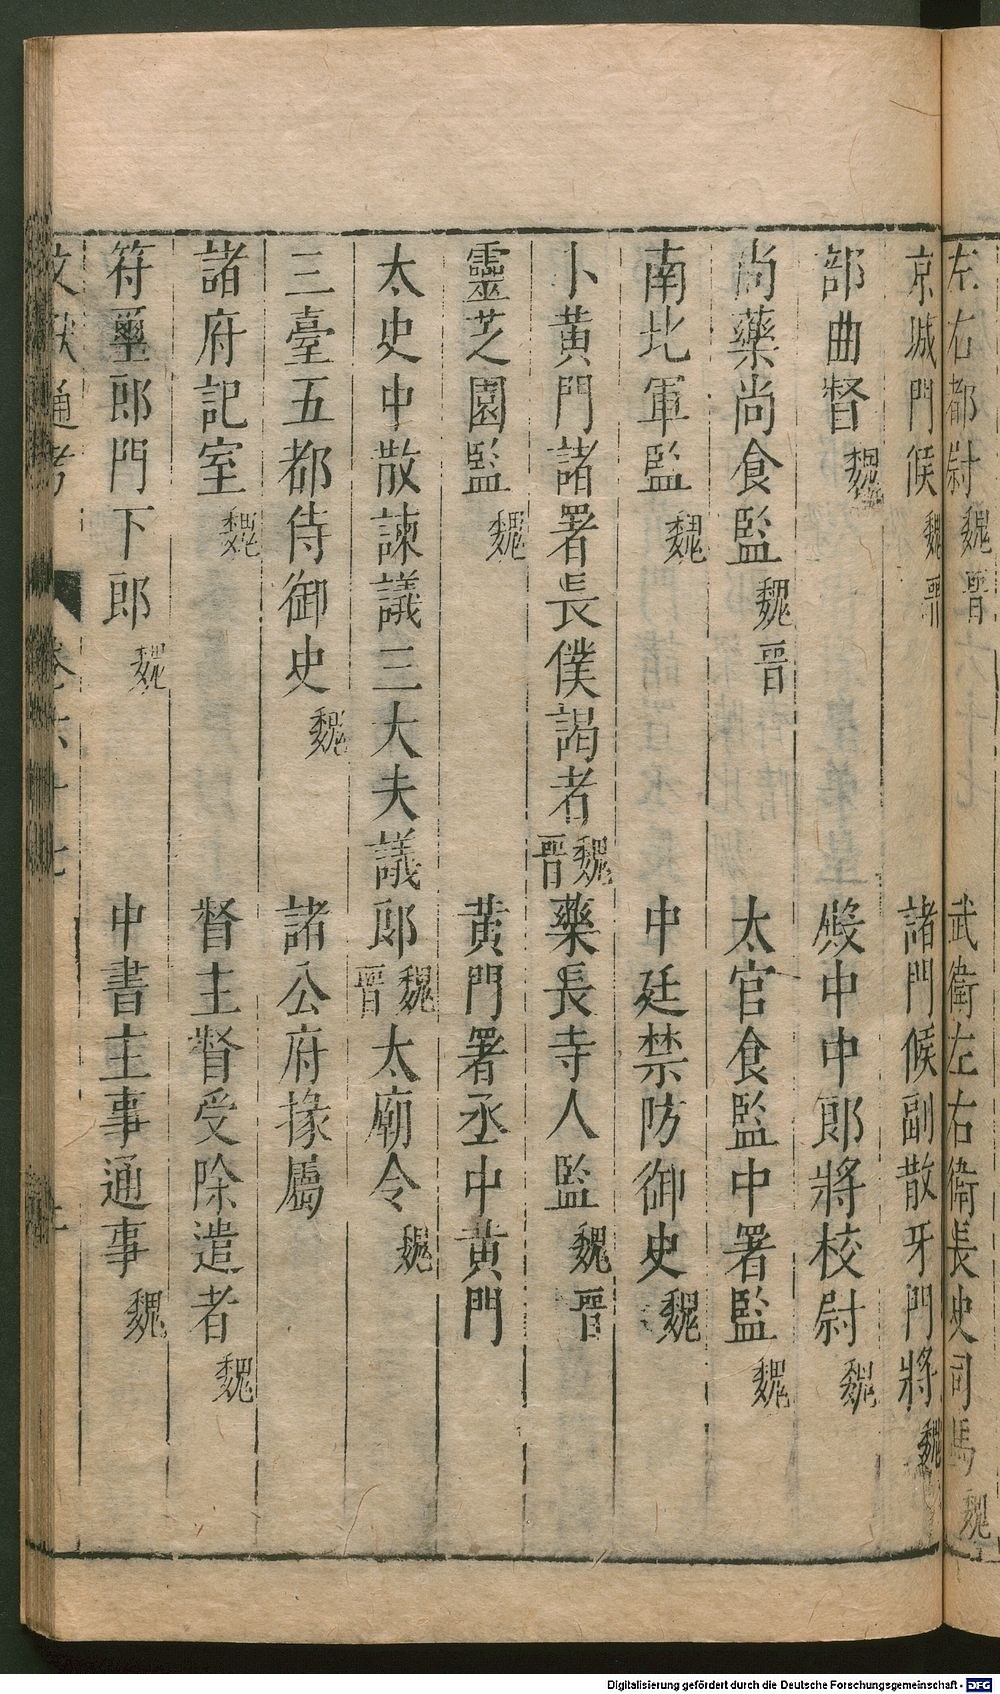 左右都尉魏晉 武衛左右衛長史司馬魏
京城門候魏晉 諸門候副散牙門將魏
部曲督魏 殿中中郎將校尉魏
尚藥尚食監魏晉 太官食監中署監魏
南北軍監魏 中廷禁防御史魏
卜黃門諸署長僕謁者魏晉 藥長寺人監魏晉
靈芝園監魏 黃門署丞中黃門
太史中散諫議三大夫議郎魏晉 太廟令魏
三臺五都侍御史魏 諸公府掾屬
諸府記室魏 督主督受除遣者魏
符璽郎門下郎魏 中書主事通事魏
文獻通考 卷六十七
Digitalisierung gefördert durch die Deutsche Forschungsgemeinschaft - DFG